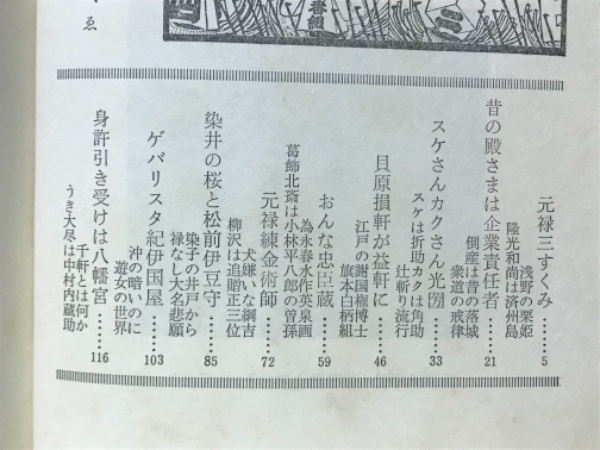 番組
ゑ
元禄三すくみ……5
浅野の栗姫
隆光和尚は済州島
昔の殿さまは企業責任者……21
倒産は昔の落城
衆道の戒律
スケさんカクさん光圀……33
スケは折助カクは角助
辻斬り流行
貝原損軒が益軒に……46
江戸の謝国権博士
旗本白柄組
おんな忠臣蔵……59
為永春水作英泉画
葛飾北斎は小林平八郎の曽孫
元禄練金術師……72
犬嫌いな綱吉
柳沢は追贈正三位
染井の桜と松前伊豆守……85
染子の井戸から
禄なし大名悲願
ゲバリスタ紀伊国屋……103
沖の暗いのに
遊女の世界
身許引き受けは八幡宮……116
千軒とは何か
うき大尽は中村内蔵助